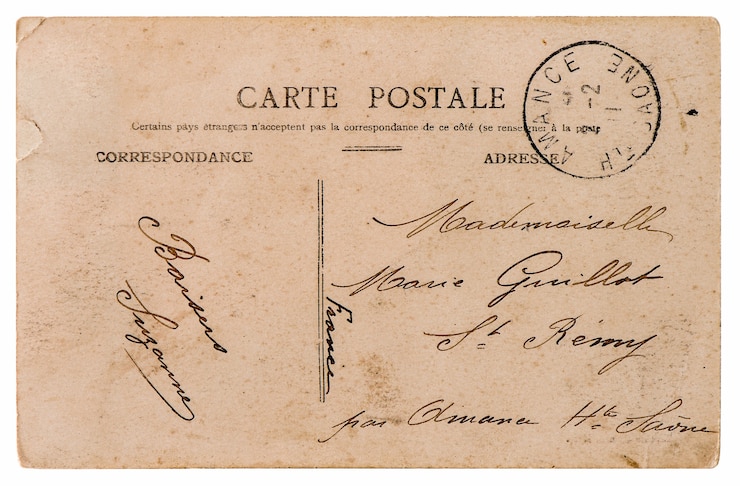 CARTE POSTALE
Certains pays étrangers n'acceptent pas la correspondance de ce côté (se renseigner à la poste
CORRESPONDANCE
ADRESSE
AMANCE
Hte SAONE
-2
11
Baisers
Suzanne
France
Mademoiselle
Marie Guillot
St Rémy
par Amance Hte Saône